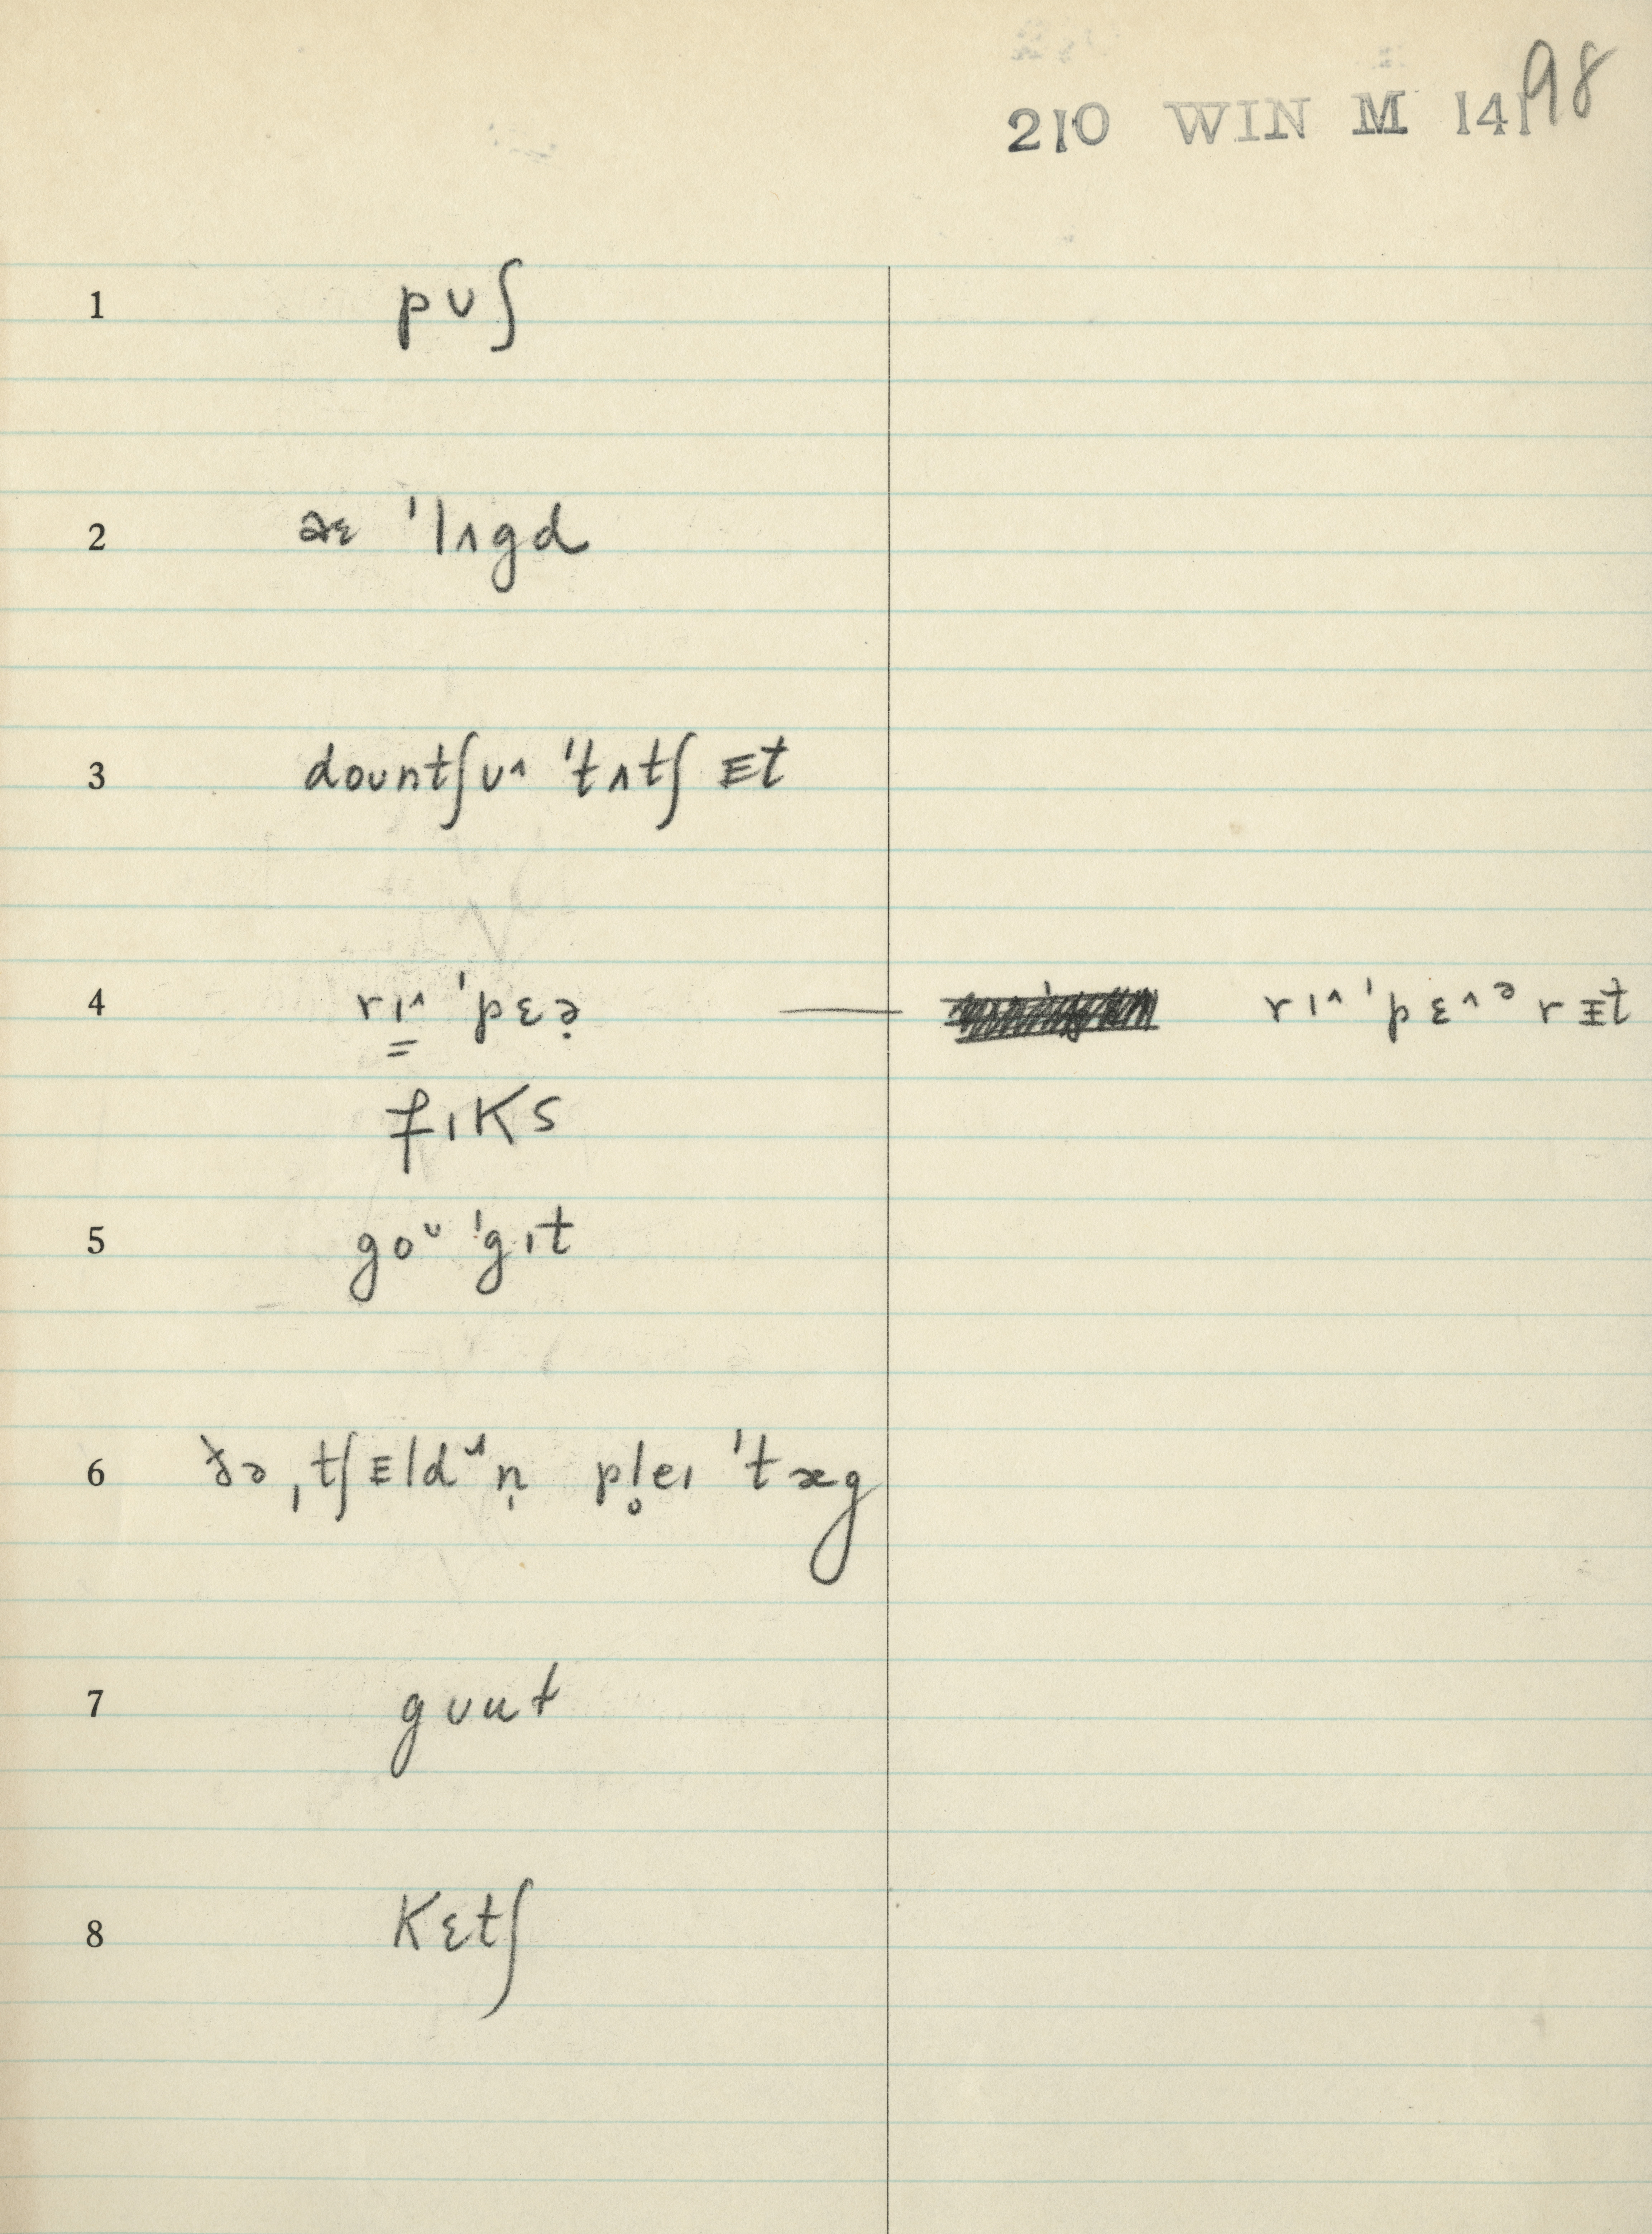 210 WIN M 141 98
1 pʊʃ
2 æɛ ˈlʌgd
3 doʊntʃʊ˄ ˈtʌtʃ ᴇt
4 rɪ˄ ˈpɛə̣ — rɪ˄ ˈpɛ˄ᵊrᴇt
fɪks
5 goᶷ ˈgɪt
6 ðə ˌtʃᴇldᶷn̩ pl̥eɪ ˈtæg
7 gʊut
8 kɛtʃ